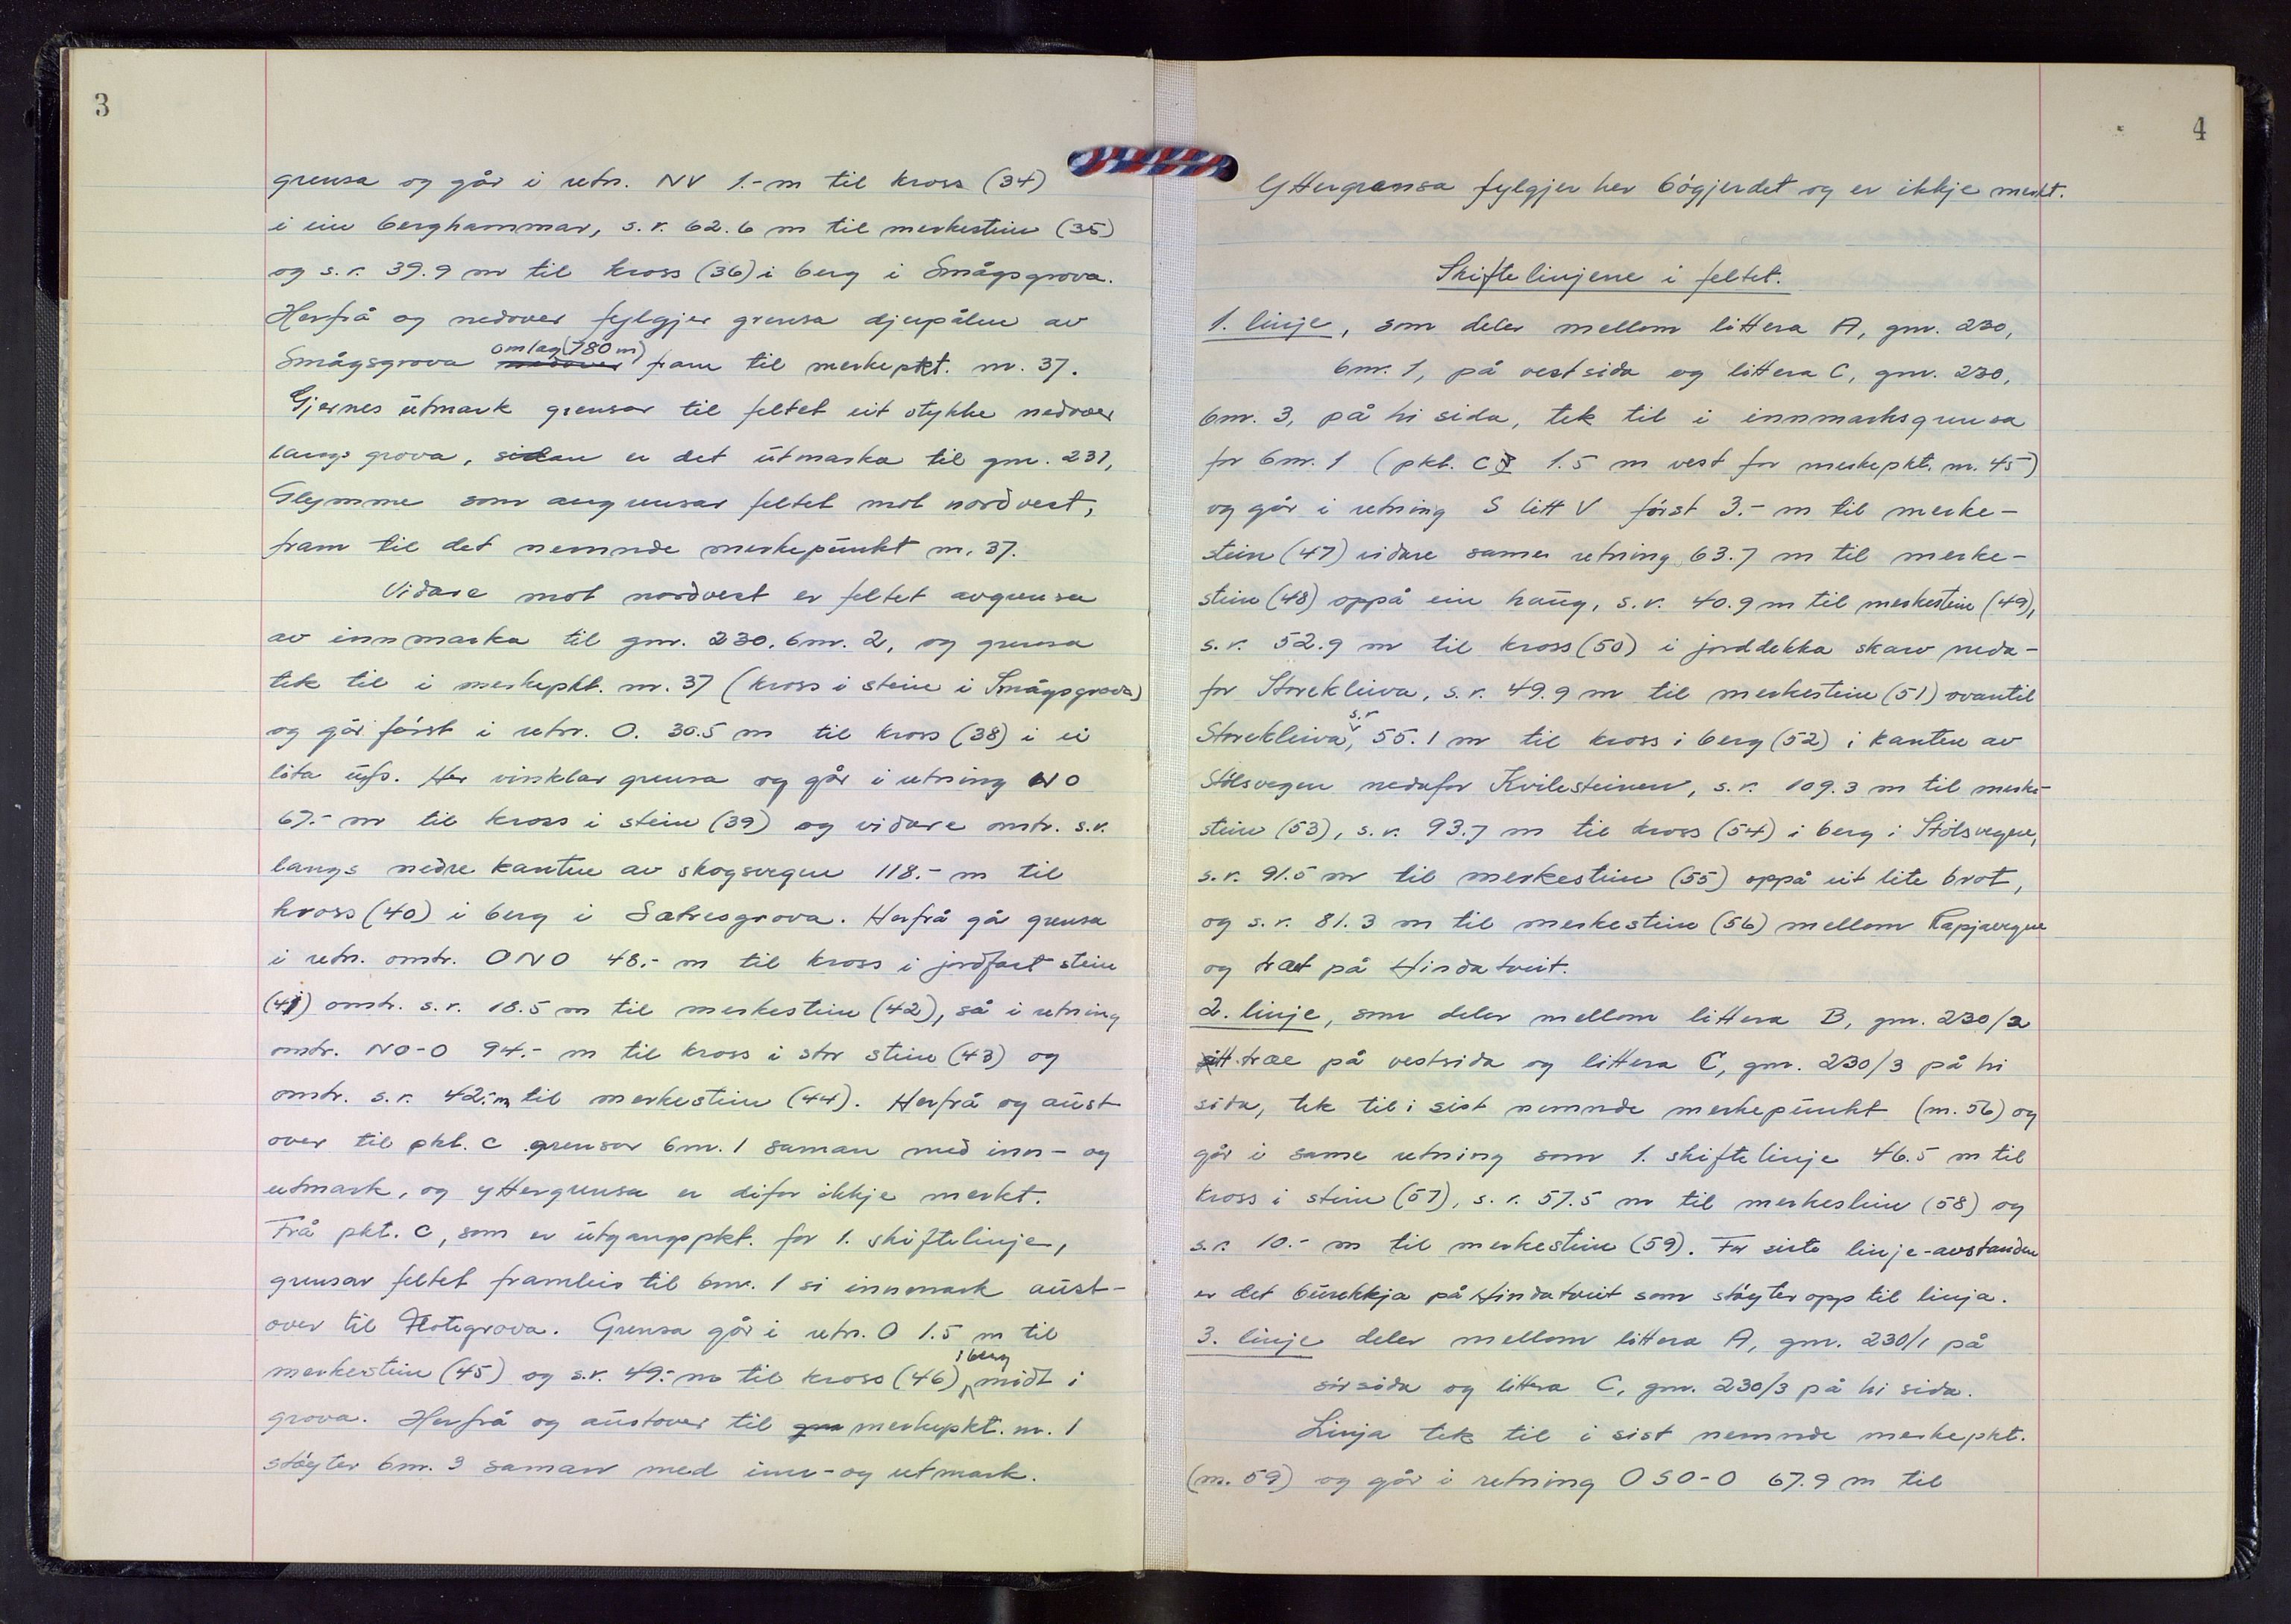 3
grensa og går i retn. NV 1.- m til kross (34)
i ein berghammar, s.r. 62.6 m til merkestein (35)
og s.r. 39.9 m til kross (36) i berg i Smågsgrova.
Herfrå og nedover fylgjer grensa djupålen av
Smågsgrova nedover omlag (780 m) fram til merkepkt. nr. 37.
Gjernes utmark grensar til feltet eit stykke nedover
langs grova, sidan er det utmarka til gnr. 231,
Glymme som avgrensar feltet mot nordvest,
fram til det nemnde merkepunkt nr. 37.
Vidare mot nordvest er feltet avgrensa
av innmarka til gnr. 230, bnr. 2, og grensa
tek til i merkepkt. nr. 37 (kross i stein i Smågsgrova)
og går først i retn. O. 30.5 m til kross (38) i ei
lita ufs. Her vinklar grensa og går i retning NO
67.- m til kross i stein (39) og vidare omtr. s.r.
langs nedre kanten av skogsvegen 118.- m til
kross (40) i berg i Sætresgrova. Herfrå går grensa
i retn. omtr. ONO 48.- m til kross i jordfast stein
(41) omtr. s.r. 18.5 m til merkestein (42), så i retning
omtr. NO-O 94.- m til kross i stor stein (43) og
omtr. s.r. 42.- m til merkestein (44). Herfrå og aust
over til pkt. C grensar bnr. 1 saman med inn- og
utmark, og yttergrensa er difor ikkje merkt.
Frå pkt. C, som er utgangspkt. for 1. skiftelinje,
grensar feltet framleis til bnr. 1 si innmark aust-
over til Flotegrova. Grensa går i retn. O 1.5 m til
merkestein (45) og s.r. 49.- m til kross (46) i berg midt i
grova. Herfrå og austover til gre merkepkt. nr. 1
støyter bnr. 3 saman med inn- og utmark.
4
Yttergrensa fylgjer her bøgjerdet og er ikkje merkt.
Skiftelinjene i feltet.
1. linje, som deler mellom littera A, gnr. 230,
bnr. 1, på vestsida og littera C, gnr. 230,
bnr. 3, på hi sida, tek til i innmarksgrensa
for bnr. 1 (pkt. C 1.5 m vest for merkepkt. nr. 45)
og går i retning S litt V først 3.- m til merke-
stein (47) vidare samen retning 63.7 m til merke-
stein (48) oppå ein haug, s.r. 40.9 m til merkestein (49),
s.r. 52.9 m til kross (50) i jorddekka skarv neda-
for Storekleiva, s.r. 49.9 m til merkestein (51) ovantil
Storekleiva, s.r 55.1 m til kross i berg (52) i kanten av
Stølsvegen nedafor Kvilesteinen, s.r. 109.3 m til merke-
stein (53), s.r. 93.7 m til kross (54) i berg i Stølsvegen,
s.r. 91.5 m til merkestein (55) oppå eit lite brot,
og s.r. 81.3 m til merkestein (56) mellom Rapjavegen
og træet på Hindatveit.
2. linje, som deler mellom littera B, gnr. 230/2
sitt træe på vestsida og littera C, gnr. 230/3 på hi
sida, tek til i sist nemnde merkepunkt (nr. 56) og
går i same retning som 1. skiftelinje 46.5 m til
kross i stein (57), s.r. 57.5 m til merkestein (58) og
s.r. 10.- m til merkestein (59). For siste linje-avstanden
er det burekkja på Hindatveit som støyter opp til linja.
3. linje deler mellom littera A, gnr. 230/1 på
sørsida og littera C, gnr. 230/3 på hi sida.
Linja tek til i sist nemnde merkepkt.
(nr. 59) og går i retning OSO-O 67.9 m til